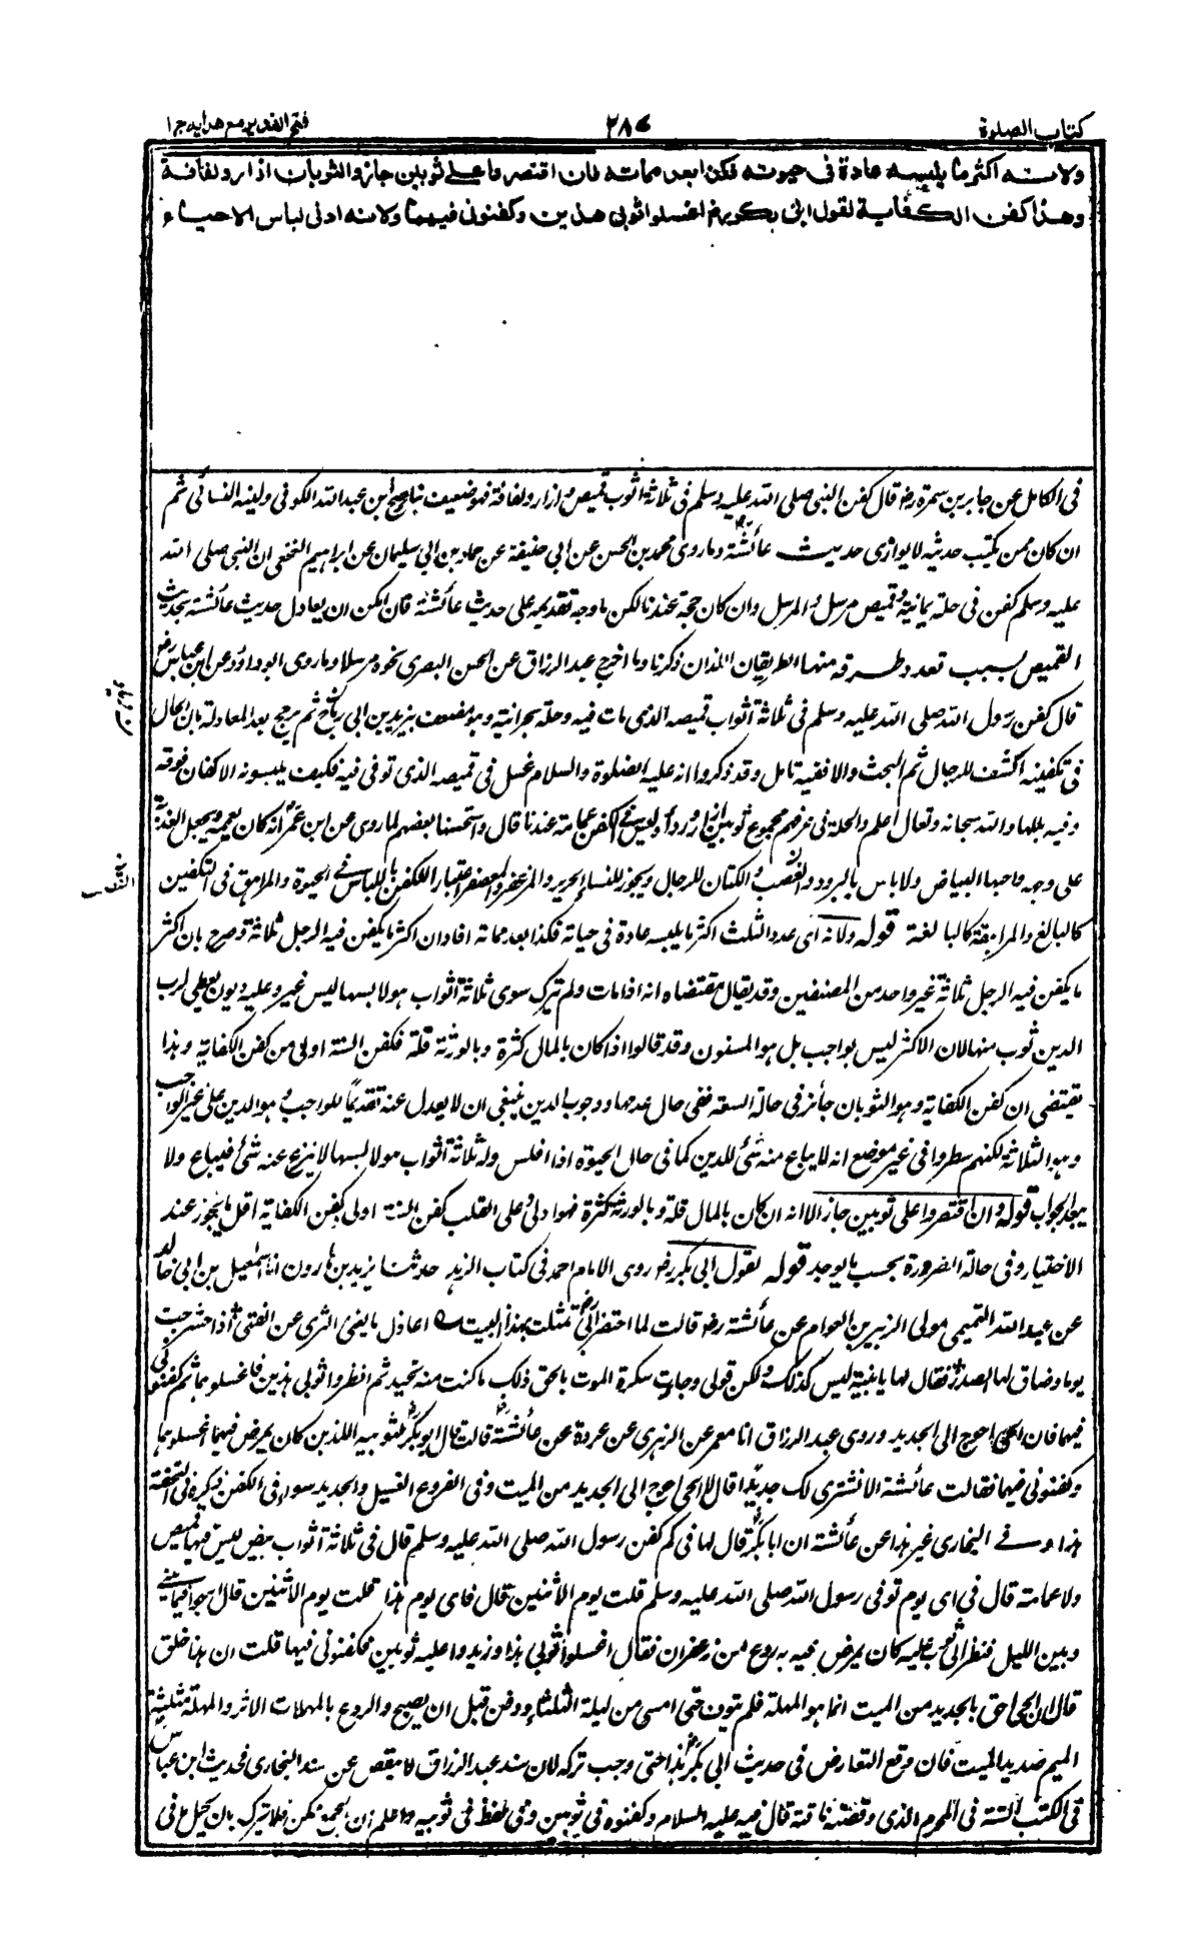 كتاب الصلوة
٢٨٤
فتح القدير مع هدايه ج١
ولانه اكثر ما يلبسه عادة فى حيوته فكذا بعد مماته فان اقتصروا على ثوبين جاز والثوبان ازار ولفافة
وهذا كفن الكفاية لقول ابى بكر رض اغسلوا ثوبى هذين وكفنونى فيهما ولانه ادنى لباس الاحياء
فى الكامل عن جابر بن سمرة رض قال كفن النبى صلى الله عليه وسلم فى ثلاثة اثواب قميص وازار ولفافة فهو ضعيف بناصح ابن عبد الله الكوفى ولينه النسائى ثم
ان كان ممن يكتب حديثه لا يوازى حديث عائشة وماروى محمد بن الحسن عن ابى حنيفة عن حماد بن ابى سليمان عن ابراهيم النخعى ان النبى صلى الله
عليه وسلم كفن فى حلة يمانية وقميص مرسل والمرسل وان كان حجة عندنا لكن ما وجه تقديمه على حديث عائشة فان امكن ان يعادل حديث عائشة بحديث
القميص بسبب تعدد طرقه منها الطريقان اللذان ذكرنا وما اخرج عبد الرزاق عن الحسن البصرى نحوه مرسلا وماروى ابو داؤد عن ابن عباس رض
قال كفن رسول الله صلى الله عليه وسلم فى ثلاثة اثواب قميصه الذى مات فيه وحلة نجرانية وهو مضعف بيزيد بن ابى زياد ثم ترجح بعد المعادلة بان الحال
فى تكفينه اكشف للرجال ثم البحث والا ففيه تامل وقد ذكروا انه عليه الصلوة والسلام غسل فى قميصه الذى توفى فيه فكيف يلبسونه الاكفان فوقه
وفيه بللها والله سبحانه وتعالى اعلم والحلة فى عرفهم مجموع ثوبين ازار ورداء وليس فى الكفن عمامة عندنا قال واستحسنها بعضهم لما روى عن ابن عمر انه كان يعممه ويجعل العذبة
على وجهه واحبها البياض ولا باس بالبرود والقصب والكتان للرجال ويجوز للنساء الحرير والمزعفر والمعصفر اعتبارا للكفن باللباس فى الحيوة والمراهق فى التكفين
كالبالغ والمراهقة كالبالغة قوله ولانه اى عدد الثلث اكثر ما يلبسه عادة فى حياته فكذا بعد مماته افاد ان اكثر ما يكفن فيه الرجل ثلاثة وصرح بان اكثر
ما يكفن فيه الرجل ثلاثة غير واحد من المصنفين وقد يقال مقتضاه انه اذا مات ولم يترك سوى ثلاثة اثواب هو لابسها ليس غير وعليه ديون يعطى لرب
الدين ثوب منها لان الاكثر ليس بواجب بل هو المسنون وقد قالوا اذا كان بالمال كثرة وبالورثة قلة فكفن السنة اولى من كفن الكفاية وهذا
يقتضى ان كفن الكفاية وهو الثوبان جائز فى حالة السعة ففى حال عدمها ووجوب الدين ينبغى ان لا يعدل عنه تقديما للواجب وهو الدين على غير الواجب
وهو الثلاثة لكنهم سطروا فى غير موضع انه لا يباع منه شئ للدين كما فى حال الحيوة اذا افلس وله ثلاثة اثواب هو لابسها لا ينزع عنه شئ فيباع ولا
يبعد الجواب قوله وان اقتصروا على ثوبين جاز الا انه ان كان بالمال قلة وبالورثة كثرة فهو اولى وعلى القلب كفن السنة اولى وكفن الكفاية اقل ما يجوز عند
الاختيار وفى حالة الضرورة بحسب ما يوجد قوله لقول ابى بكر رض روى الامام احمد فى كتاب الزهد حدثنا يزيد بن هارون انا اسمعيل بن ابى خالد
عن عبد الله التيمى مولى الزبير بن العوام عن عائشة رض قالت لما احتضر ابو بكر تمثلت بهذا البيت ه اعاذل ما يغنى الثرى عن الفتى اذا حشرجت
يوما وضاق لها الصدر فقال لها يا بنية ليس كذلك ولكن قولى وجاءت سكرة الموت بالحق ذلك ما كنت منه تحيد ثم انظروا ثوبى هذين فاغسلوهما ثم كفنونى
فيهما فان الحى احوج الى الجديد وروى عبد الرزاق انا معمر عن الزهرى عن عروة عن عائشة قالت قال ابو بكر لثوبيه اللذين كان يمرض فيهما اغسلوهما
وكفنونى فيهما فقالت عائشة الا نشترى لك جديدا قال لا الحى احوج الى الجديد من الميت وفى الفروع الغسيل والجديد سواء فى الكفن ذكره فى التحفة
هذا وفى البخارى غير هذا عن عائشة ان ابا بكر قال لها فى كم كفن رسول الله صلى الله عليه وسلم قال فى ثلاثة اثواب بيض ليس فيها قميص
ولا عمامة قال فى اى يوم توفى رسول الله صلى الله عليه وسلم قلت يوم الاثنين قال فاى يوم هذا قلت يوم الاثنين قال ارجو فيما بينى
وبين الليل فنظر الى ثوب عليه كان يمرض فيه به روع من زعفران فقال اغسلوا ثوبى هذا وزيدوا عليه ثوبين فكفنونى فيها قلت ان هذا خلق
قال ان الحى احق بالجديد من الميت انما هو المهلة فلم يتوف حتى امسى من ليلة الثلثاء ودفن قبل ان يصبح والروع بالمهملات الاثر والمهلة مثلثة
الميم صديد الميت فان وقع التعارض فى حديث ابى بكر هذا حتى وجب تركه لان سند عبد الرزاق لا ينقص عن سند البخارى فحديث ابن عباس
فى الكتب الستة فى المحرم الذى وقصته ناقته قال فيه عليه السلام وكفنوه فى ثوبين وفى لفظ فى ثوبيه واعلم ان الجمع ممكن فلا يترك بان يحمل ما فى